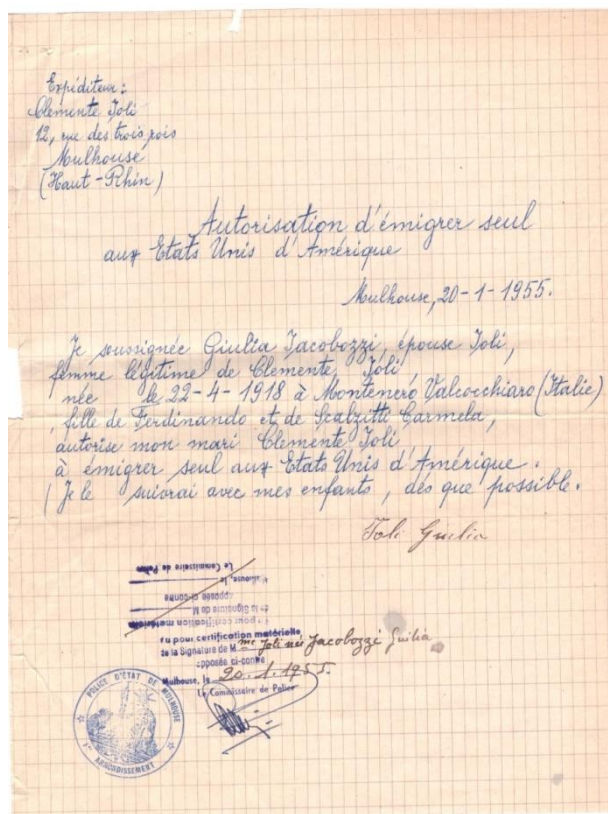 Expéditeur :
Clemente Joli
12, rue des trois rois
Mulhouse
(Haut-Rhin)
Autorisation d'émigrer seul
aux Etats Unis d'Amérique
Mulhouse, 20-1-1955.
Je soussignée Giulia Jacobozzi, épouse Joli,
femme légitime de Clemente Joli,
née le 22-4-1918 à Montenero Valcocchiaro (Italie)
, fille de Ferdinando et de Scalzitti Carmela,
autorise mon mari Clemente Joli
à émigrer seul aux Etats Unis d'Amérique.
(Je le suivrai avec mes enfants, dès que possible.
Joli Giulia
Le Commissaire de Police
Mulhouse, le
apposée ci-contre
de la Signature de M
Vu pour certification matérielle
Vu pour certification matérielle
de la Signature de Mme Joli née Jacobozzi Giulia
apposée ci-contre
Mulhouse, le 20.1.1955.
Le Commissaire de Police
POLICE D'ETAT DE MULHOUSE
1er ARRONDISSEMENT